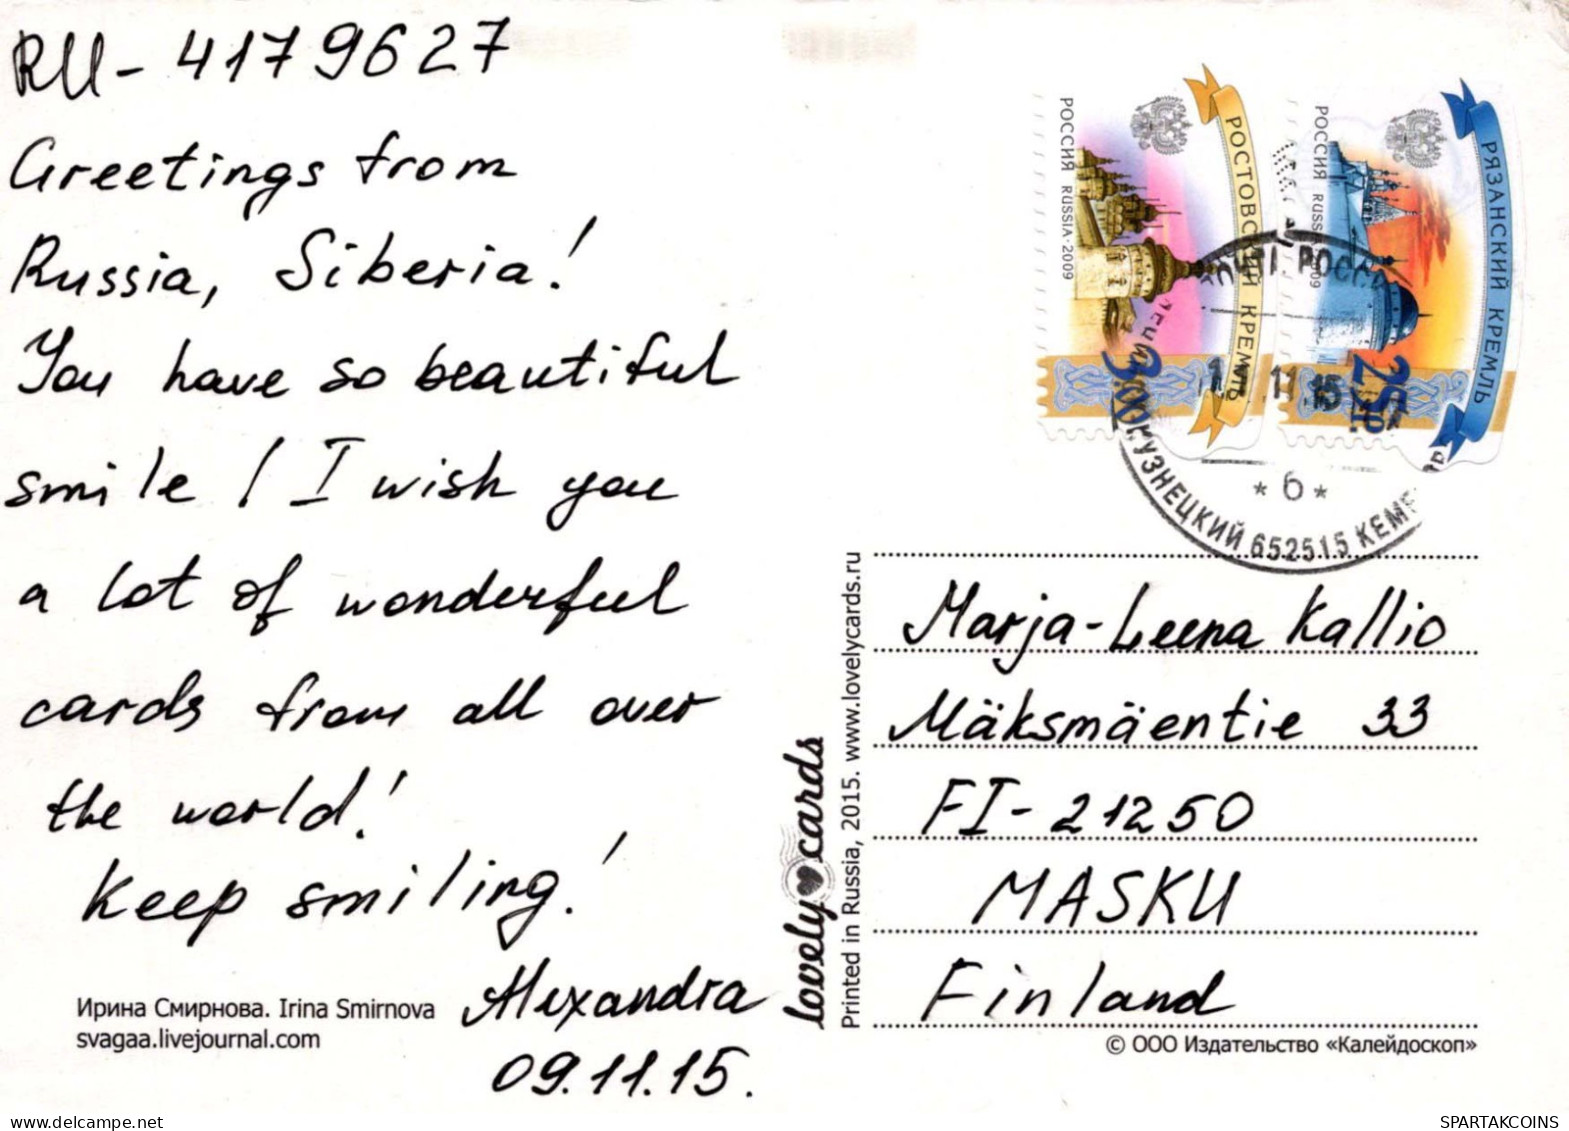 RU-4179627
Greetings from
Russia, Siberia!
You have so beautiful
smile! I wish you
a lot of wonderful
cards from all over
the world!
Keep smiling!
Alexandra
09.11.15.
Ирина Смирнова. Irina Smirnova
svagaa.livejournal.com
lovely cards
Printed in Russia, 2015. www.lovelycards.ru
РОССИЯ RUSSIA·2009
РОСТОВСКИЙ КРЕМЛЬ
3.00
РОССИЯ RUSSIA 2009
РЯЗАНСКИЙ КРЕМЛЬ
25р
11 15
*6*
КУЗНЕЦКИЙ 652515 КЕМЕР
Marja-Leena Kallio
Mäksmäentie 33
FI-21250
MASKU
Finland
© ООО Издательство «Калейдоскоп»
delcampe.net
SPARTAKCOINS